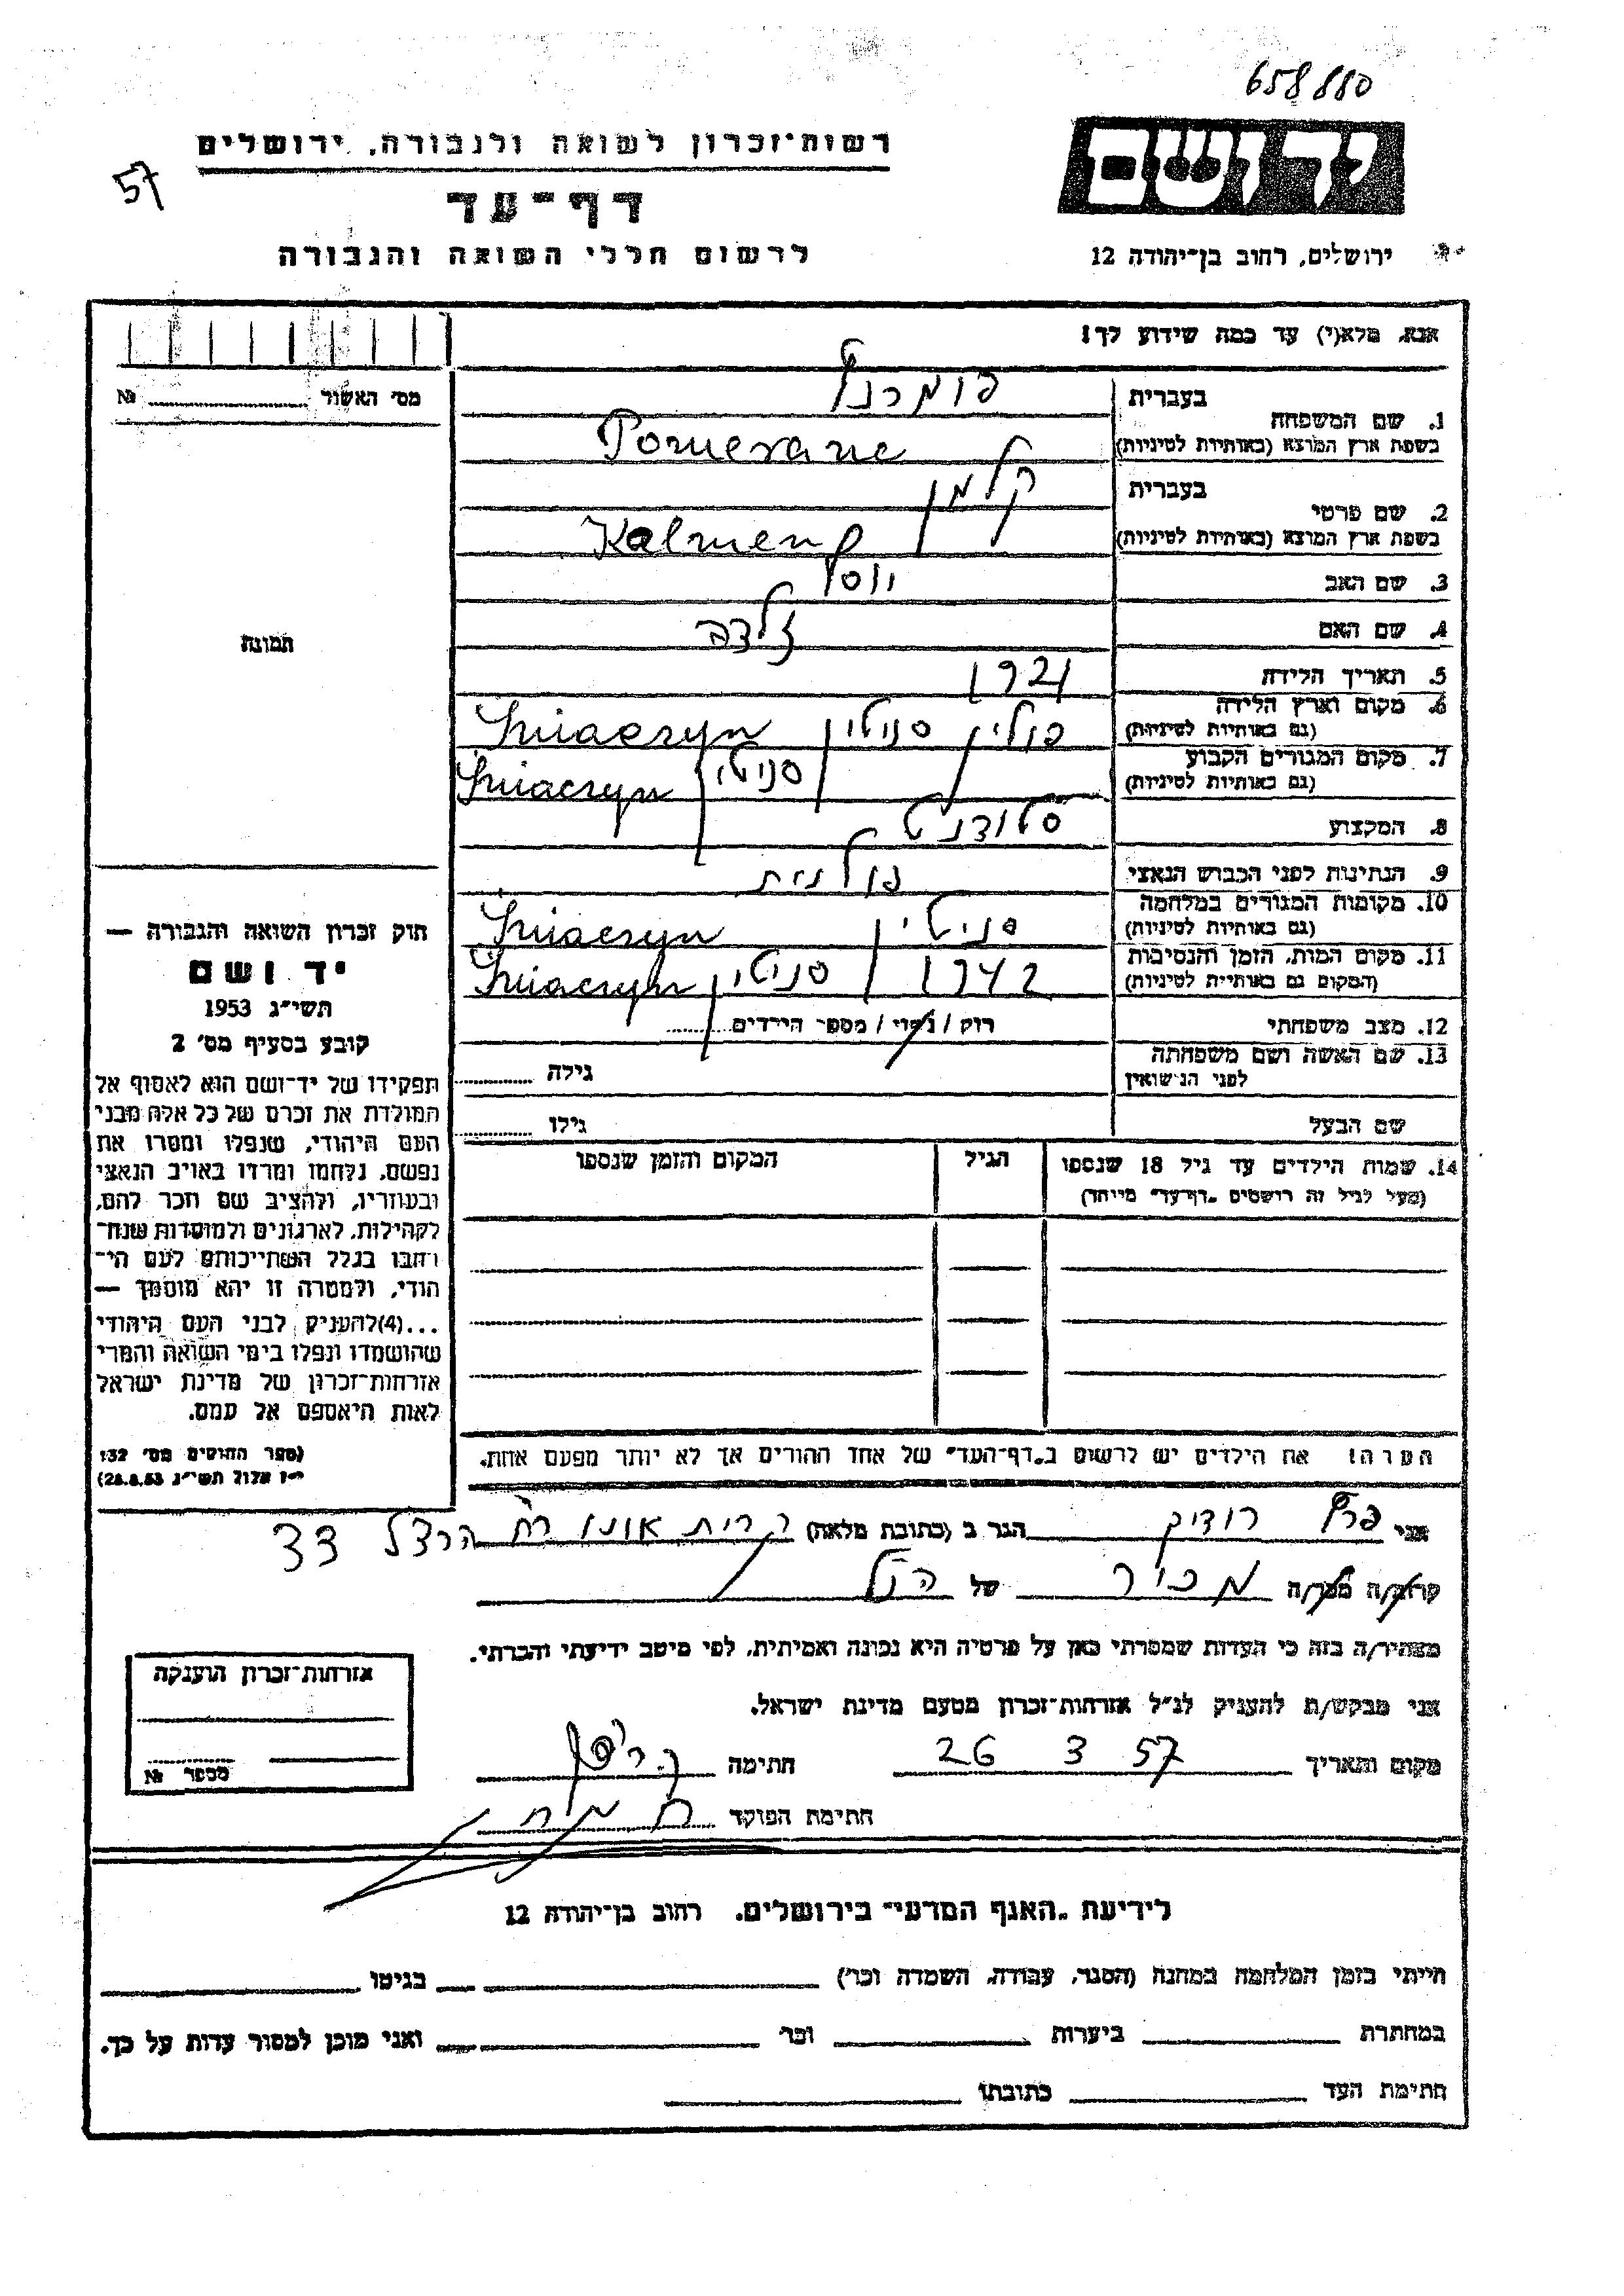 658880
רשות־זכרון לשואה ולגבורה, ירושלים
57
דף־עד
לרשום חללי השואה והגבורה
יד ושם
ירושלים, רחוב בן־יהודה 12
אנא, מלא(י) עד כמה שידוע לך!
מס׳ האשור № 
תמונה
1. שם המשפחה
בעברית
פומרנץ
בשפת ארץ המוצא (באותיות לטיניות)
Pomeranc
2. שם פרטי
בעברית
קלמן
בשפת ארץ המוצא (באותיות לטיניות)
Kalmen
3. שם האב יוסף
4. שם האם זלדה
5. תאריך הלידה 1921
6. מקום וארץ הלידה (גם באותיות לטיניות) פולין סניטין Sniaczyn
7. מקום המגורים הקבוע (גם באותיות לטיניות) סניטין Sniaczyn
8. המקצוע סטודנט
9. הנתינות לפני הכבוש הנאצי פולנית
10. מקומות המגורים במלחמה (גם באותיות לטיניות) סניטין Sniaczyn
11. מקום המות, הזמן והנסיבות (המקום גם באותיות לטיניות) 1942 סניטין Sniaczyn
12. מצב משפחתי רוק / נשוי / מספר הילדים
13. שם האשה ושם משפחתה לפני הנישואין
גילה
שם הבעל
גילו
14. שמות הילדים עד גיל 18 שנספו
(מעל לגיל זה רושמים „דף־עד" מיוחד)
הגיל
המקום והזמן שנספו
הערה! את הילדים יש לרשום ב„דף־העד" של אחד ההורים אך לא יותר מפעם אחת.
חוק זכרון השואה והגבורה —
יד ושם
תשי״ג 1953
קובע בסעיף מס׳ 2
תפקידו של יד־ושם הוא לאסוף אל
המולדת את זכרם של כל אלה מבני
העם היהודי, שנפלו ומסרו את
נפשם, נלחמו ומרדו באויב הנאצי
ובעוזריו, ולהציב שם וזכר להם,
לקהילות, לארגונים ולמוסדות שנח־
רבו בגלל השתייכותם לעם הי־
הודי, ולמטרה זו יהא מוסמך —
...(4) להעניק לבני העם היהודי
שהושמדו ונפלו בימי השואה והמרי
אזרחות־זכרון של מדינת ישראל
לאות היאספם אל עמם.
(ספר החוקים מס׳ 132
י״ז אלול תשי״ג 28.8.53)
אני רודיק הגר ב (כתובת מלאה) קרית אונו רח הרצל 33
קרוב/ה מכר/ה מכיר של הנ״ל
מצהיר/ה בזה כי העדות שמסרתי כאן על פרטיה היא נכונה ואמיתית, לפי מיטב ידיעתי והכרתי.
אני מבקש/ת להעניק לנ״ל אזרחות־זכרון מטעם מדינת ישראל.
מקום ותאריך 26 3 57 חתימה
חתימת הפוקד
אזרחות־זכרון הוענקה
מספר №
לידיעת „האגף המדעי" בירושלים, רחוב בן־יהודה 12
הייתי בזמן המלחמה במחנה (הסגר, עבודה, השמדה וכו׳) בגיטו
במחתרת ביערות וכו׳ ואני מוכן למסור עדות על כך.
חתימת העד כתובתו